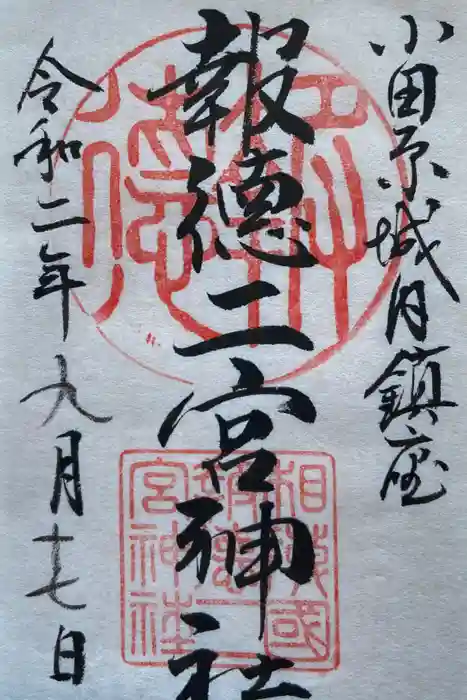 小田原城内鎮座
報徳二宮神社
令和二年九月十七日
報徳
相模國
報徳二
宮神社